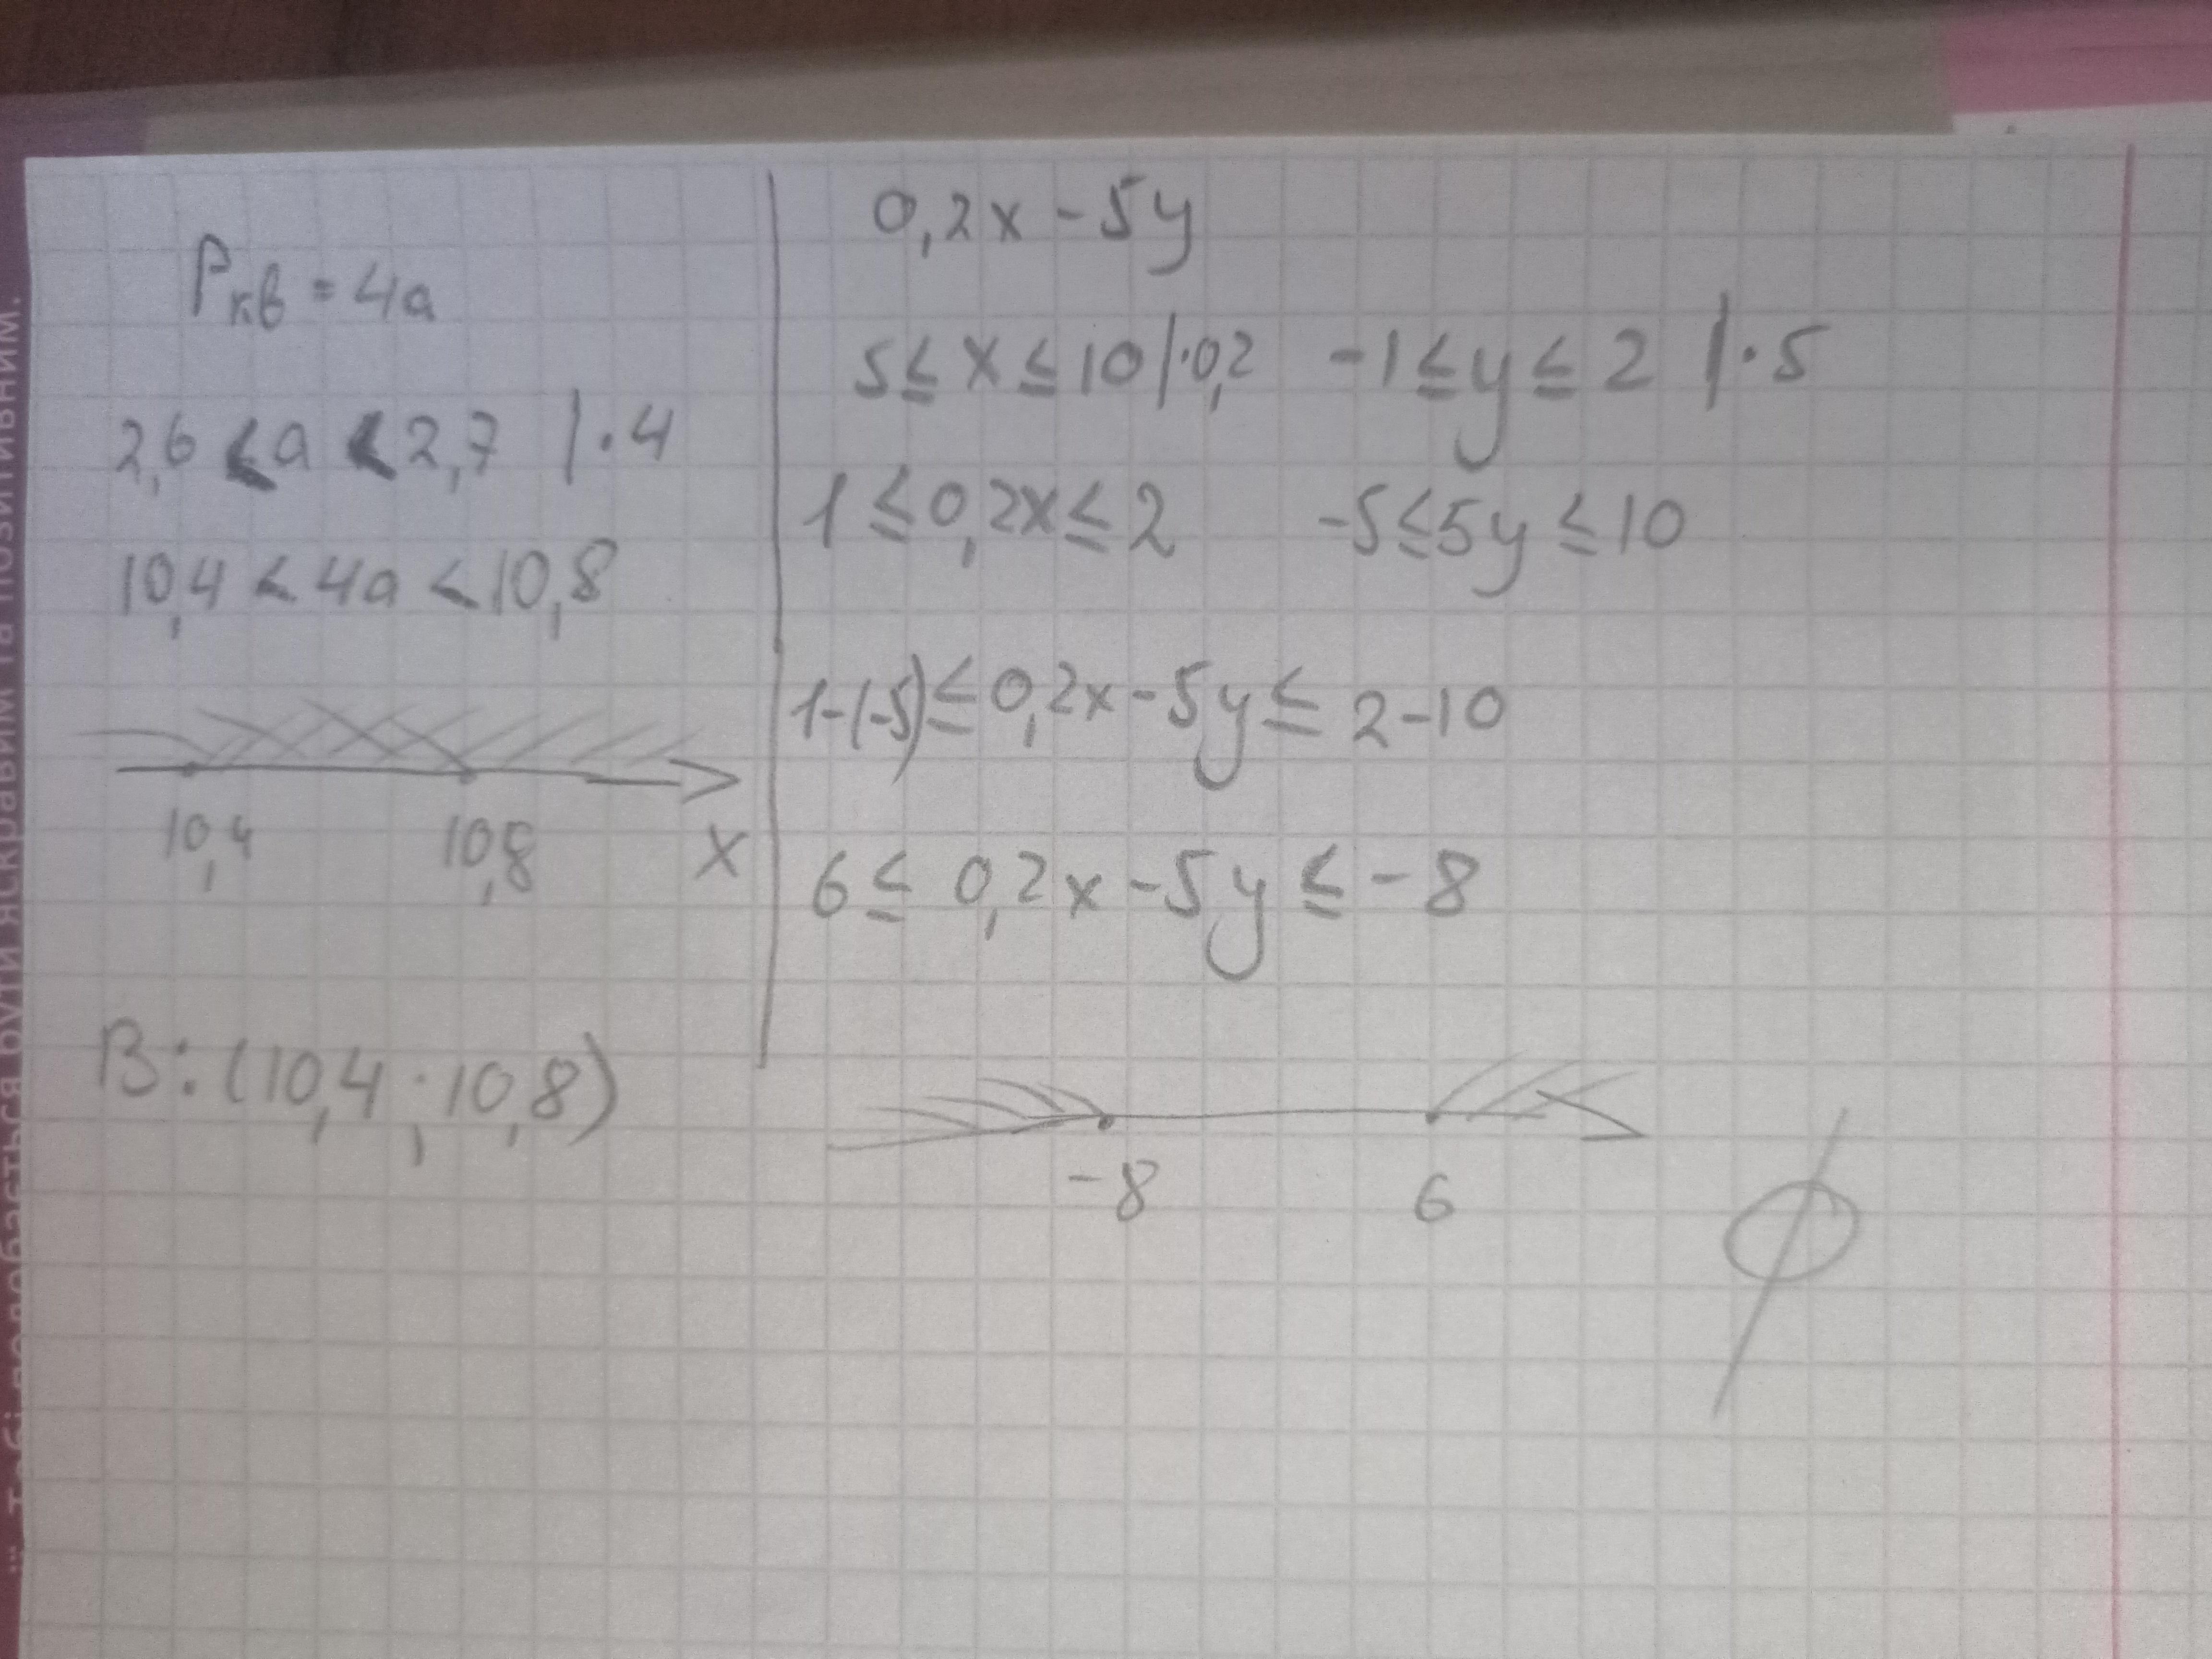 Pкв = 4a
2,6 < a < 2,7 | · 4
10,4 < 4a < 10,8
10,4 10,8 x
В: (10,4 ; 10,8)
0,2x - 5y
5 ≤ x ≤ 10 | · 0,2 -1 ≤ y ≤ 2 | · 5
1 ≤ 0,2x ≤ 2 -5 ≤ 5y ≤ 10
1-(-5) ≤ 0,2x - 5y ≤ 2 - 10
6 ≤ 0,2x - 5y ≤ - 8
-8 6
∅
яскравим та позитивним.